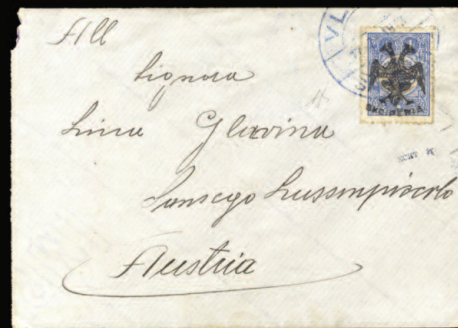 All
Signora
Lina Glavina
Sansego Lussinpiccolo
Austria
VL
SHQIPENIA